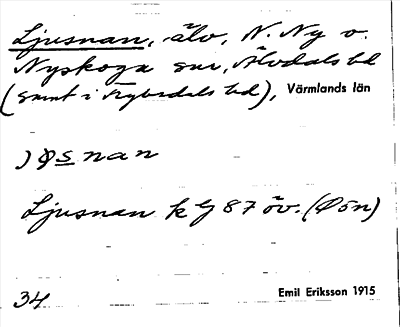 Ljusnan, älv, N. Ny o.
Nyskoga snr, Älvdals hd
(samt i Nybredals hd), Värmlands län
Ljusnan k G 87 öv. (Ø ö n)
34 Emil Eriksson 1915